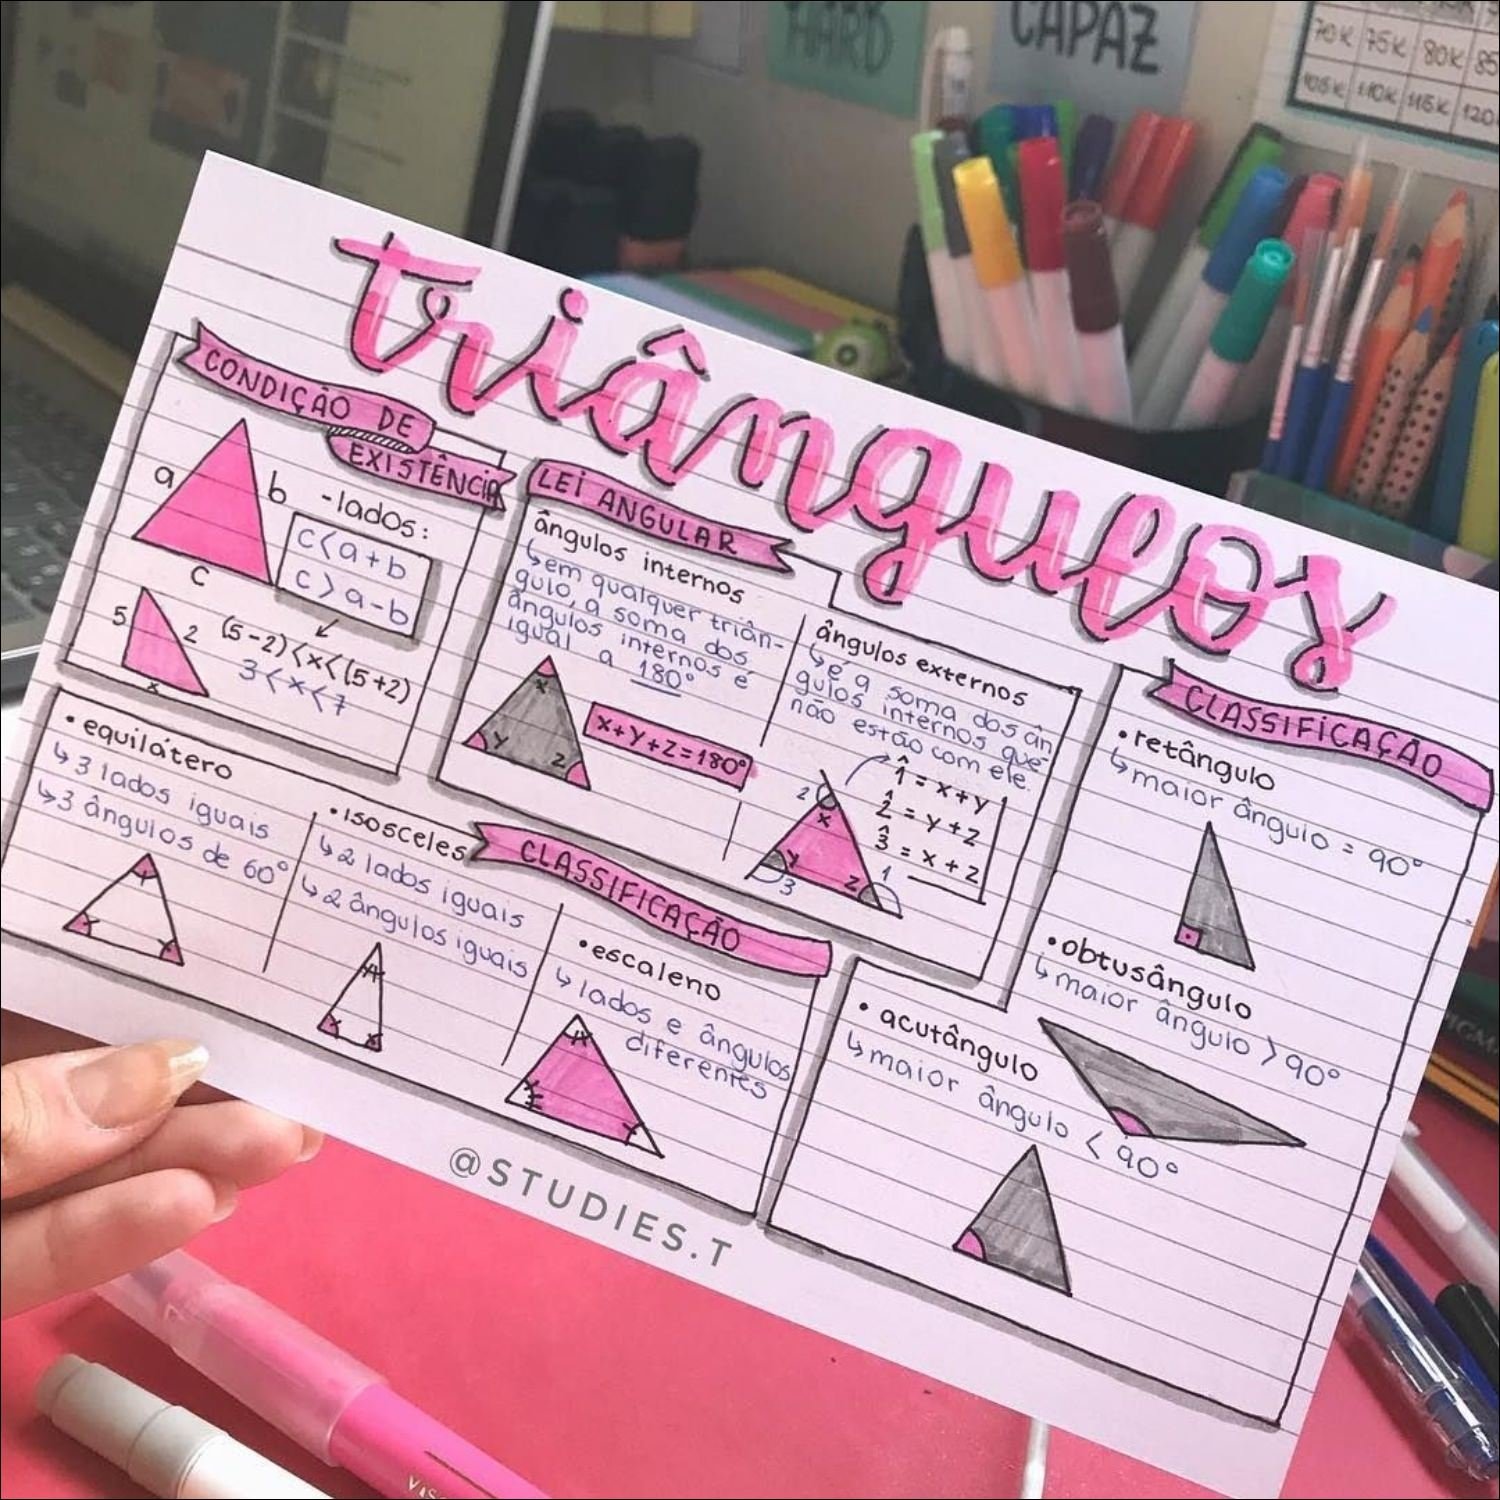 HARD
CAPAZ
70K 75K 80K 85
105K 110K 115K 120
triângulos
CONDIÇÃO DE
EXISTÊNCIA
a
b
c
-lados:
c<a+b
c>a-b
5
2
x
(5-2)<x<(5+2)
3<x<7
LEI ANGULAR
ângulos internos
↳em qualquer triân-
gulo, a soma dos
ângulos internos é
igual a 180°
x
y
z
x+y+z=180°
ângulos externos
↳é a soma dos ân
gulos internos que
não estão com ele.
1̂ = x+y
2̂ = y+z
3̂ = x+z
2
x
y
z
3
1
CLASSIFICAÇÃO
•retângulo
↳maior ângulo = 90°
•obtusângulo
↳maior ângulo >90°
• acutângulo
↳maior ângulo < 90°
CLASSIFICAÇÃO
•equilátero
↳3 lados iguais
↳3 ângulos de 60°
•isosceles
↳2 lados iguais
↳2 ângulos iguais
•escaleno
↳lados e ângulos
diferentes
@STUDIES.T